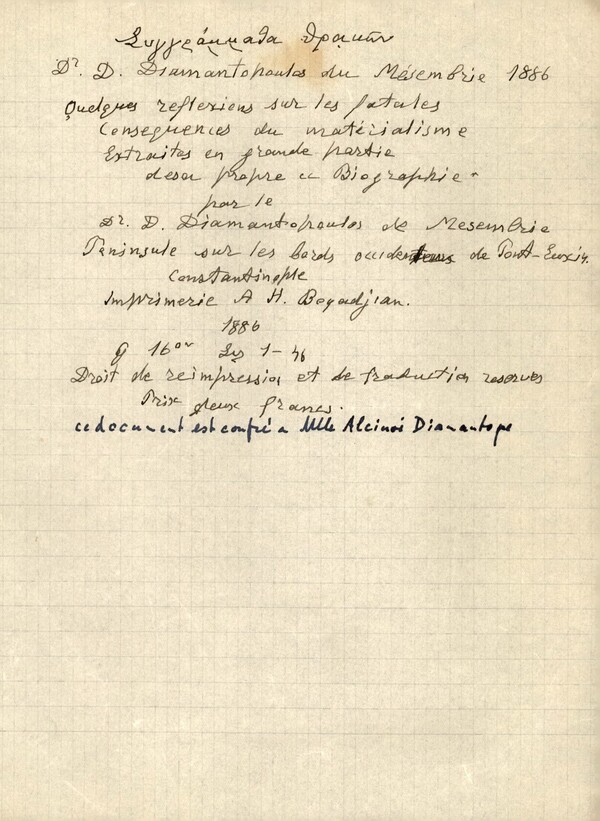 Συγγράμματα Θρακῶν
Dr. D. Diamantopoulos du Mésembrie 1886
Quelques reflexions sur les fatales
Consequences du matérialisme
Extraites en grande partie
desa propre Biographie
par le
Dr. D. Diamantopoulos de Mesembrie
Peninsule sur les bords de Pont-Euxin
Constantinople
Imprimerie A H. Boyadjian.
1886
16ον 1-46
Droit de reimpression et de traduction reserves
Prix deux francs.
ce document est confié a Mlle Alcinoé Diamantopo